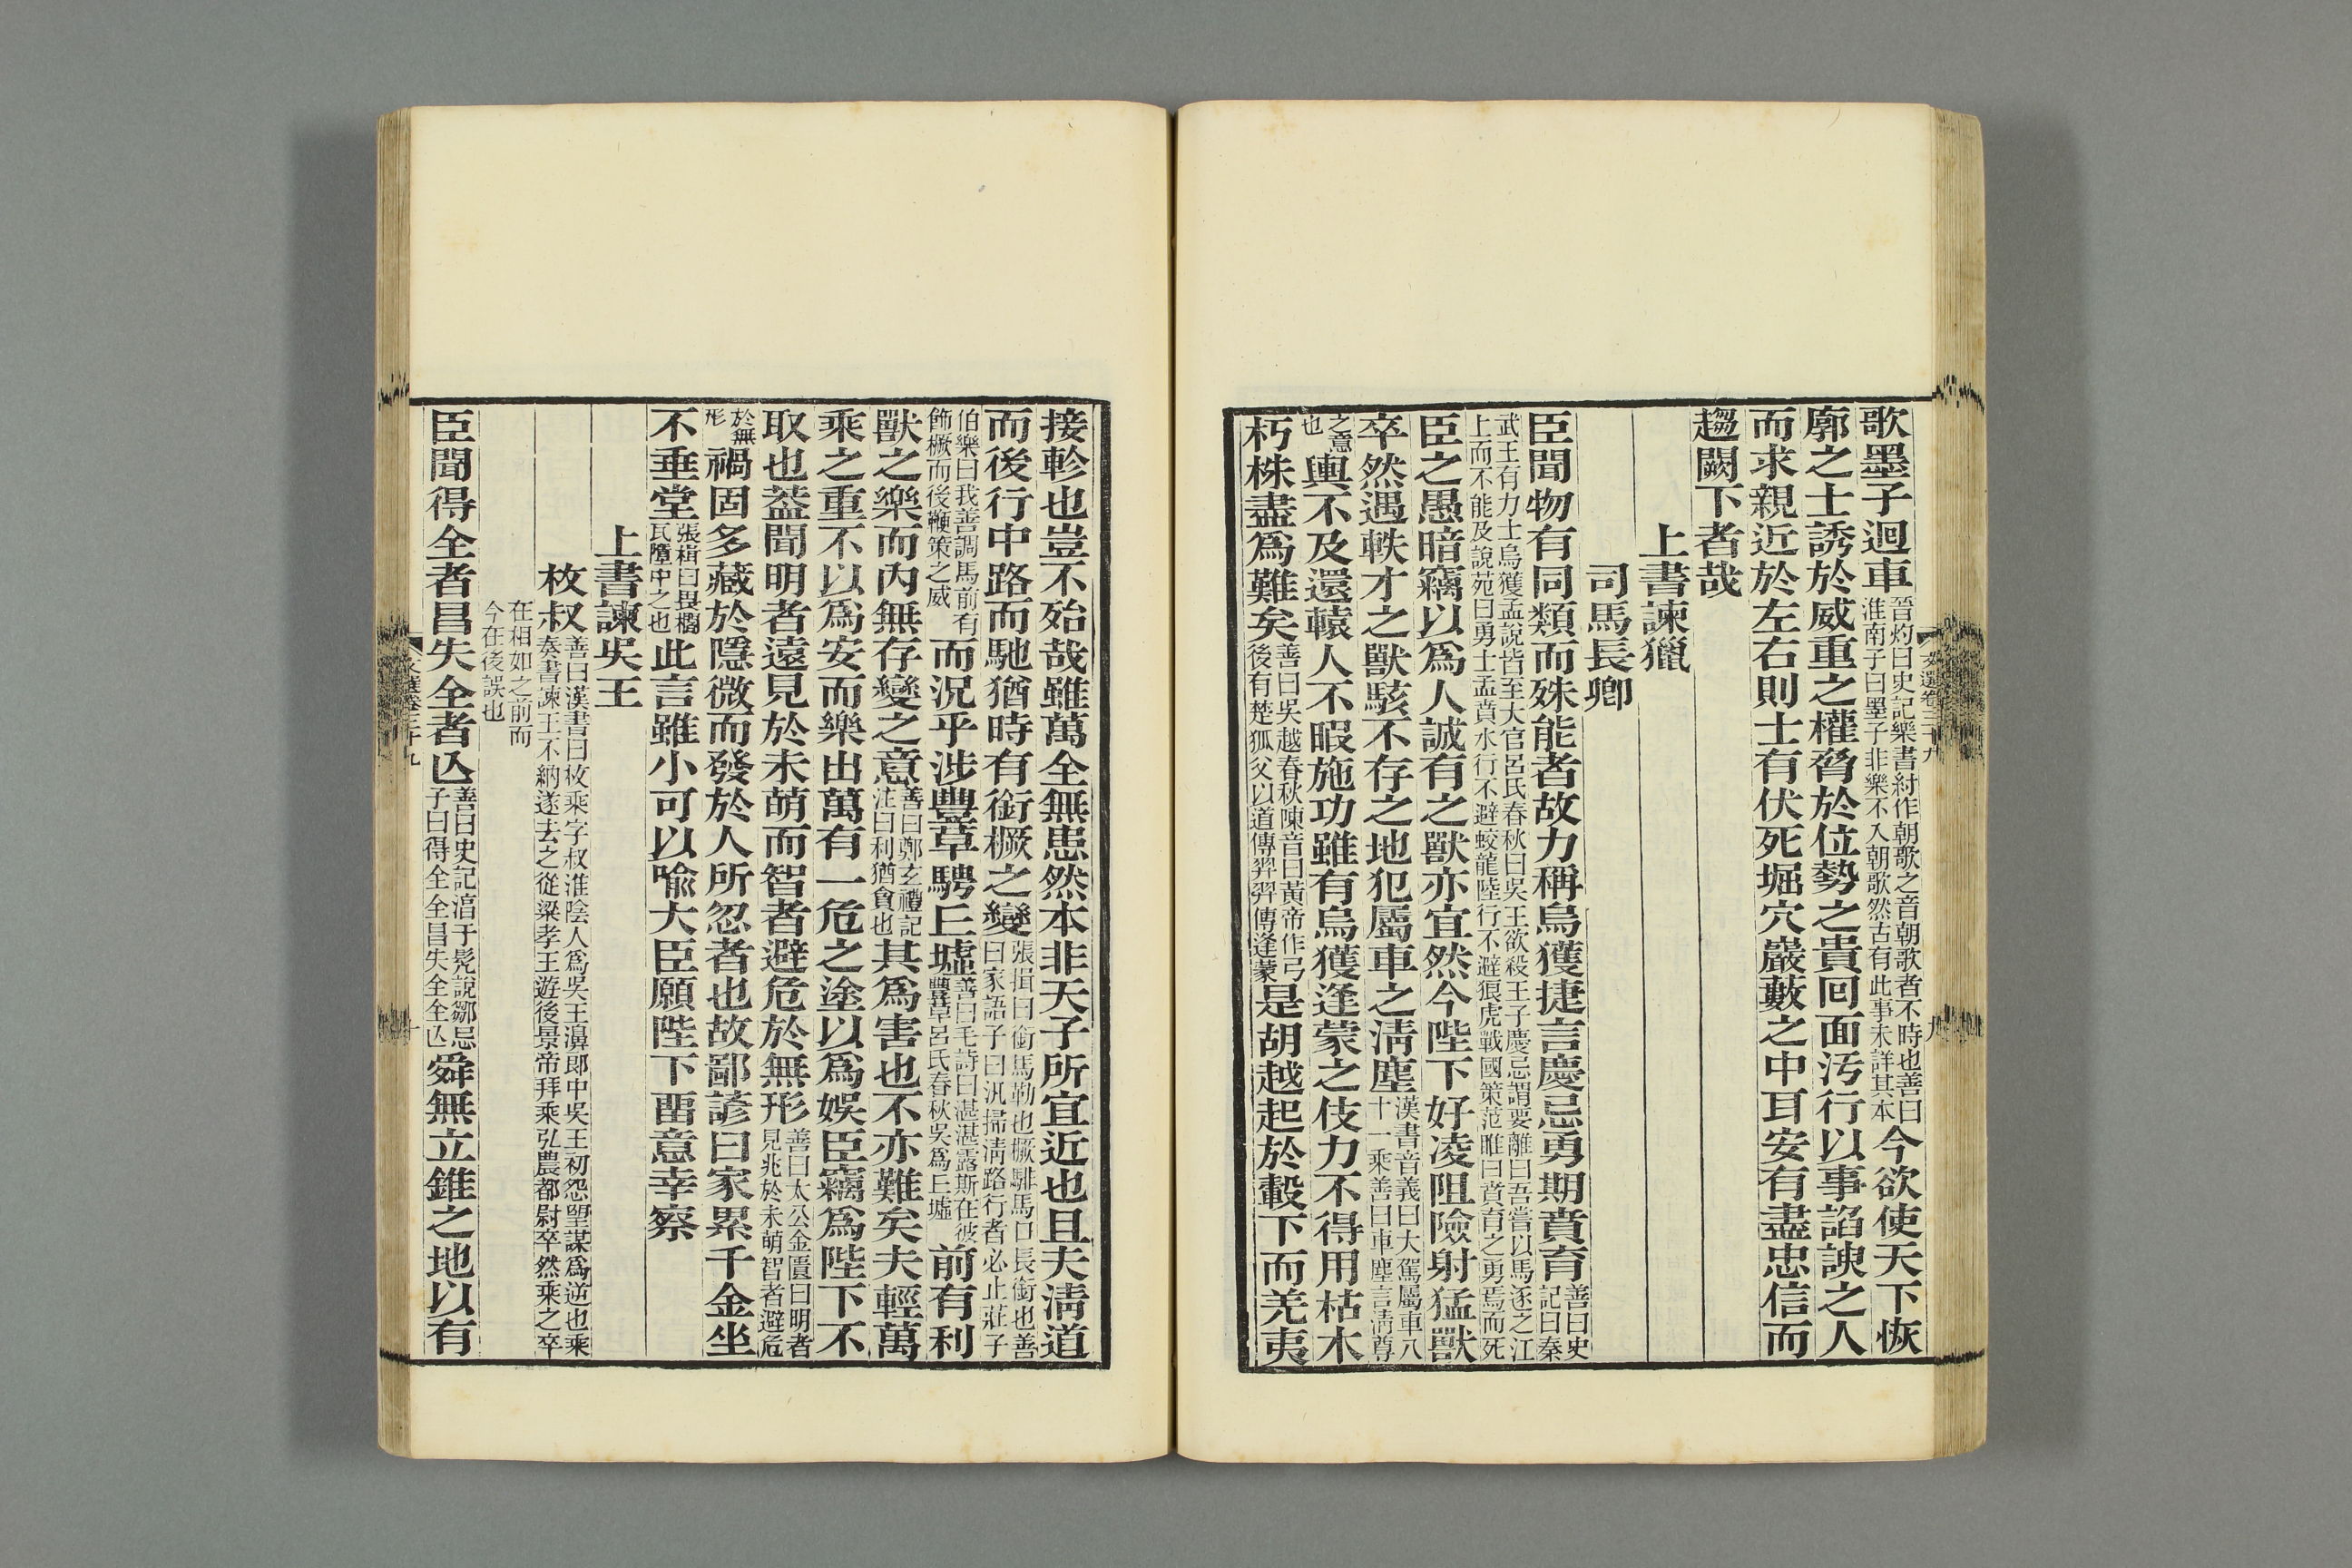 歌墨子迴車晉灼曰史記樂書紂作朝歌之音朝歌者不時也善曰淮南子曰墨子非樂不入朝歌然古有此事未詳其本今欲使天下恢
廓之士誘於威重之權脅於位勢之貴回面汚行以事諂諛之人
而求親近於左右則士有伏死堀穴巖藪之中耳安有盡忠信而
趨闕下者哉
上書諫獵
司馬長卿
臣聞物有同類而殊能者故力稱烏獲捷言慶忌勇期賁育善曰史記曰秦
武王有力士烏獲孟說皆至大官呂氏春秋曰吳王欲殺王子慶忌謂要離曰吾嘗以馬逐之江
上而不能及說苑曰勇士孟賁水行不避蛟龍陸行不避狼虎戰國策范雎曰賁育之勇焉而死
臣之愚暗竊以爲人誠有之獸亦宜然今陛下好凌阻險射猛獸
卒然遇軼才之獸駭不存之地犯屬車之淸塵漢書音義曰大駕屬車八十一乘善曰車塵言淸尊
之意也輿不及還轅人不暇施功雖有烏獲逢蒙之伎力不得用枯木
朽株盡爲難矣善曰吳越春秋陳音曰黃帝作弓後有楚狐父以道傳羿羿傳逢蒙是胡越起於轂下而羌夷
接軫也豈不殆哉雖萬全無患然本非天子所宜近也且夫淸道
而後行中路而馳猶時有銜橛之變張揖曰銜馬勒也橛騑馬口長銜也善曰家語子曰汎掃淸路行者必止莊子
伯樂曰我善調馬前有飾橛而後鞭策之威而況乎涉豐草騁丘墟善曰毛詩曰湛湛露斯在彼豐草呂氏春秋吳爲丘墟前有利
獸之樂而內無存變之意善曰鄭玄禮記注曰利猶貪也其爲害也不亦難矣夫輕萬
乘之重不以爲安而樂出萬有一危之塗以爲娛臣竊爲陛下不
取也葢聞明者遠見於未萌而智者避危於無形善曰太公金匱曰明者見兆於未萌智者避危
於無形禍固多藏於隱微而發於人所忽者也故鄙諺曰家累千金坐
不垂堂張楫曰畏櫩瓦墮中之也此言雖小可以喻大臣願陛下畱意幸察
上書諫吳王
枚叔善曰漢書曰枚乘字叔淮陰人爲吳王濞郎中吳王初怨望謀爲逆也乘奏書諫王不納遂去之從梁孝王遊後景帝拜乘弘農都尉卒然乘之卒
在相如之前而今在後誤也
臣聞得全者昌失全者亾善曰史記淳于髡說鄒忌子曰得全全昌失全全亾舜無立錐之地以有
文選卷三十九
九